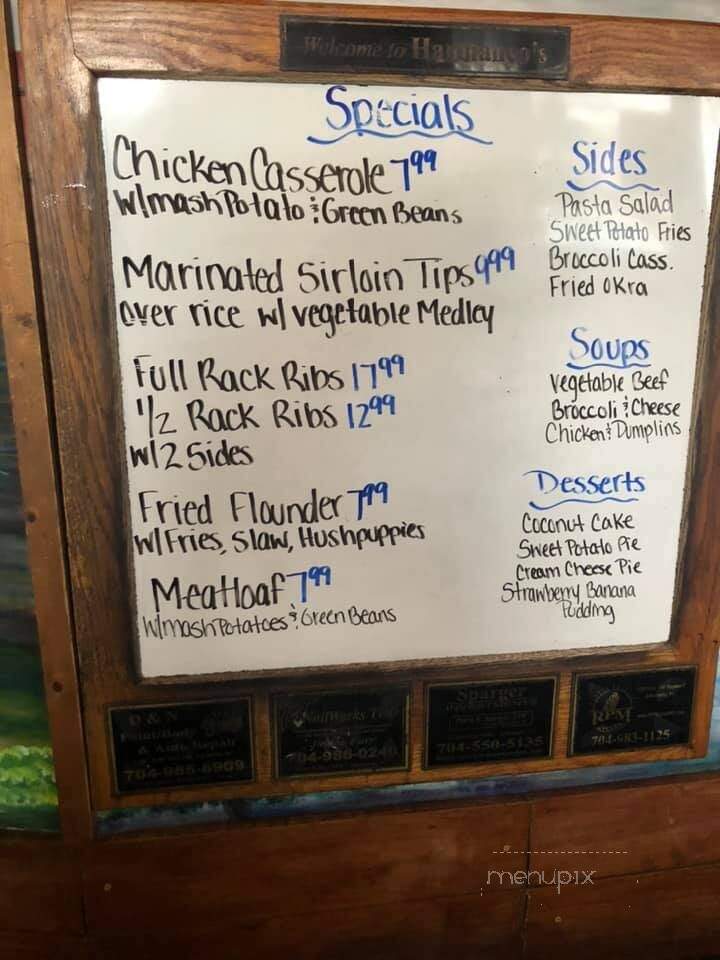 Welcome to
Specials
Chicken Casserole 7.99
W/mash Potato & Green Beans
Marinated Sirloin Tips 9.99
over rice w/ vegetable Medley
Full Rack Ribs 17.99
1/2 Rack Ribs 12.99
w/ 2 Sides
Fried Flounder 7.99
w/ Fries, Slaw, Hushpuppies
Meatloaf 7.99
W/mash Potatoes & Green Beans
Sides
Pasta Salad
Sweet Potato Fries
Broccoli Cass.
Fried Okra
Soups
Vegetable Beef
Broccoli & Cheese
Chicken & Dumplins
Desserts
Coconut Cake
Sweet Potato Pie
Cream Cheese Pie
Strawberry Banana
Pudding
D & N
& Auto Repair
704-985-6909
Sparger
704-550-5135
RPM
704-683-1125
menupix